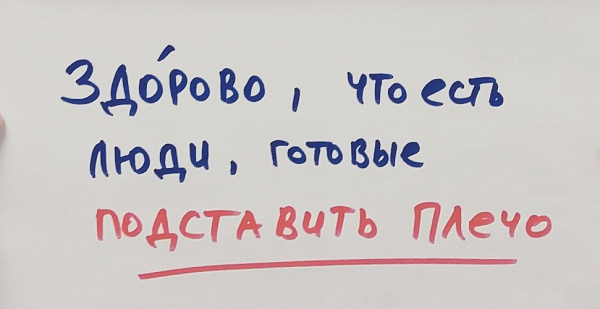 Здо́рово, что есть
люди, готовые
подставить плечо